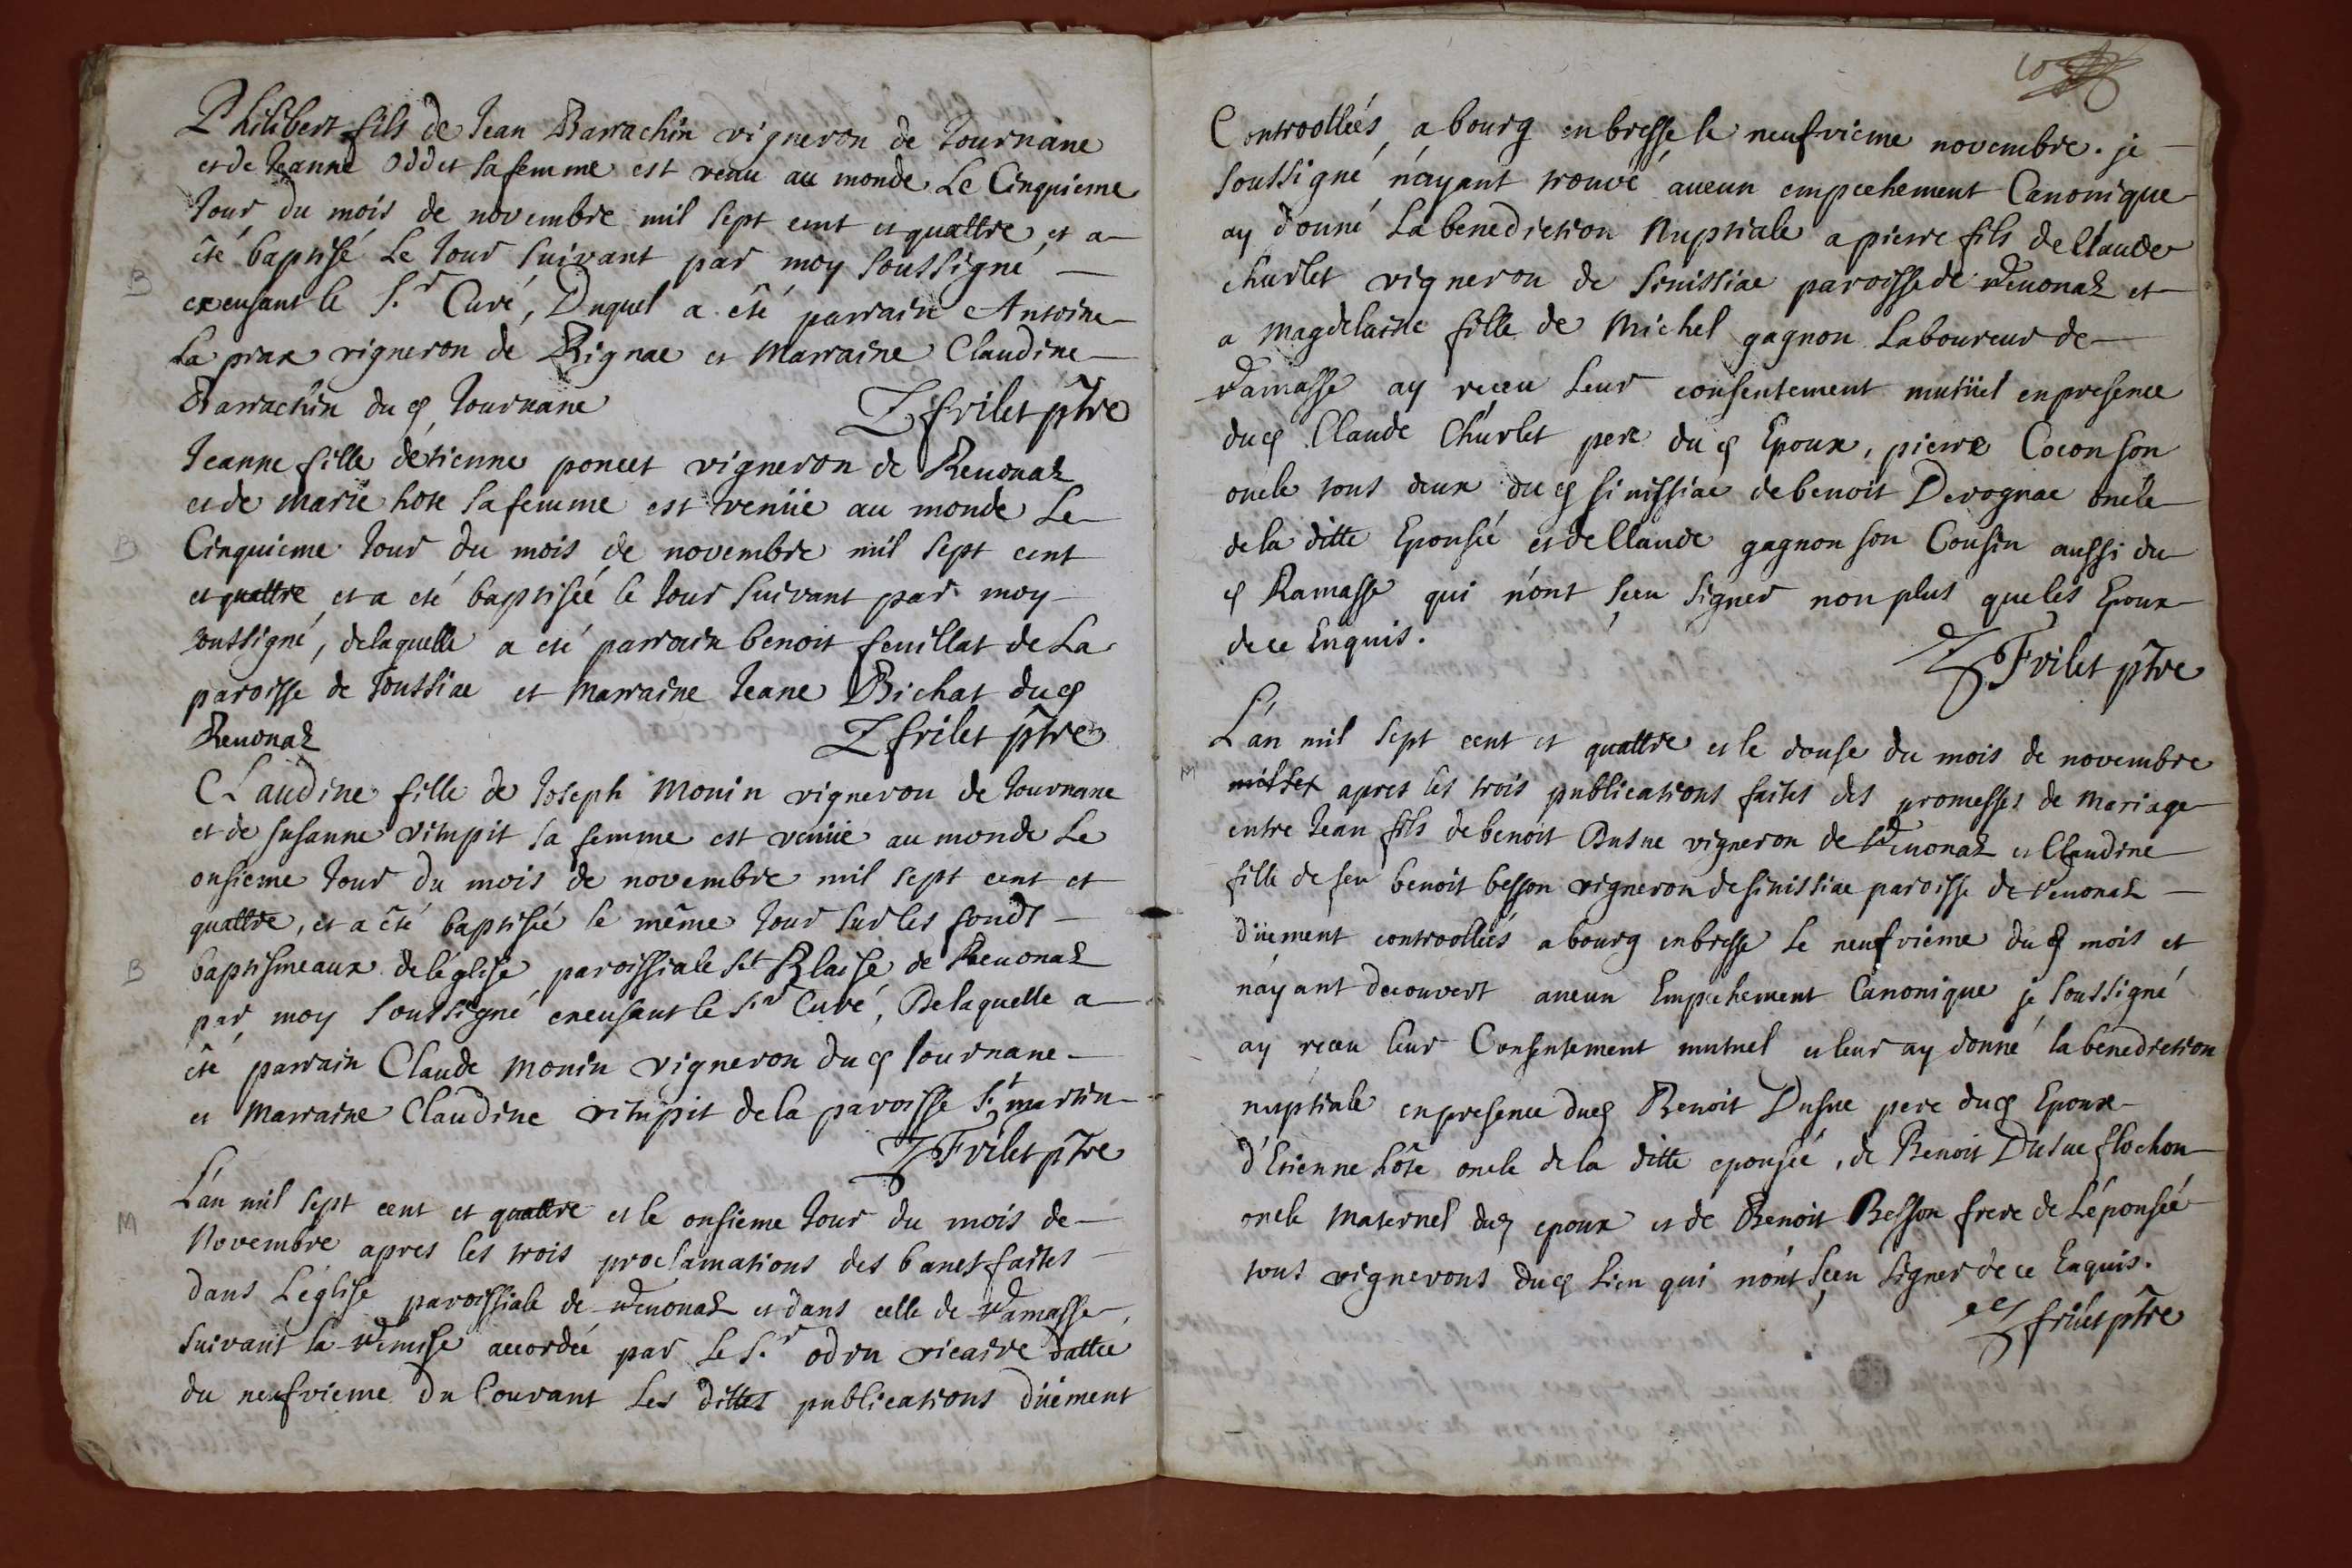 Philibert fils de Jean Barrachin vigneron de Journane
et de Jeanne oddet sa femme est venu au monde Le Cinquieme
Jour du mois de novembre mil sept cent et quattre, et a
B
été baptisé Le Jour suivant par moy soussigné
excusant le S.r Curé, Duquel a été parrain Antoine
La prax vigneron de Rignac et Marraine Claudine
Barrachin du q Journane
frilet ptre
Jeanne fille d'étienne poncet vigneron de Reuonaz
et de marie hote sa femme est veniie au monde Le
B
Cinquieme Jour du mois de novembre mil sept cent
et quattre et a eté baptisée le Jour suivant par moy
soussigné, delaquelle a eté parrain benoit feuillat de La
paroisse de Joussiac et Marraine Jeane Bichat du q
Reuonaz
frilet ptre
Claudine fille de Joseph Monin vigneron de Journane
et de susanne vitupit sa femme est veniie au monde Le
onsieme Jour du mois de novembre mil sept cent et
quattre, et a été baptisée le même Jour sur les fonds
B
baptismeaux de léglise paroissiale St Blaise de Reuonaz
par moy soussigné excusant le S.r Curé, Delaquelle a
été parrain Claude Monin vigneron du q Journane
et Marraine Claudine vitupit de la paroisse S.t martin
Frilet ptre
M
L'an mil sept cent et quattre et le onsieme Jour du mois de
Novembre apres les trois proclamations des bancs faites
dans L'église paroissiale de Reuonaz et dans celle de Ramasse,
suivant la Remise accordée par Le S.r odru vicaire dattée
du neufvieme du Courant Les dittes publications diiement
Controollées a bourg en bresse le neufvieme novembre. je
soussigné n'ayant trouvé aucun empechement Canonique
ay donné La benediction Nuptiale a pierre fils de Claude
churlet vigneron de sinissiac paroisse de Reuonaz et
a magdelaine fille de Michel gagnon Laboureur de
Ramasse ay receu Leur consentement mutüel en presence
du q Claude Churlet pere du q Epoux, pierre Cocon son
oncle tous deux du q sinissiac de benoit Devognac oncle
de la ditte Epousée et de Claude gagnon son Cousin aussi du
q Ramasse qui n'ont sçeu signer non plus que les Epoux
de ce Enquis.
Frilet ptre
L'an mil sept cent et quattre et le douse du mois de novembre
M
apres les trois publications faites des promesses de Mariage
entre Jean fils de benoit Dusue vigneron de Reuonaz et Claudine
fille de feu benoit besson vigneron de sinissiac paroisse de Reuonaz
diiement controollées a bourg en bresse Le neufvieme du q mois et
n'ayant decouvert aucun Empechement Canonique je soussigné
ay receu leur Consentement mutuel et leur ay donné la benediction
nuptiale en presence du q Benoit Dusue pere du q Epoux
d'Etienne hôte oncle de la ditte epousée, de Benoit Dusue flochon
oncle Maternel du q epoux et de Benoit Besson frere de L'épousée
tous vignerons du q Lieu qui n'ont sçeu signer de ce Enquis.
frilet ptre